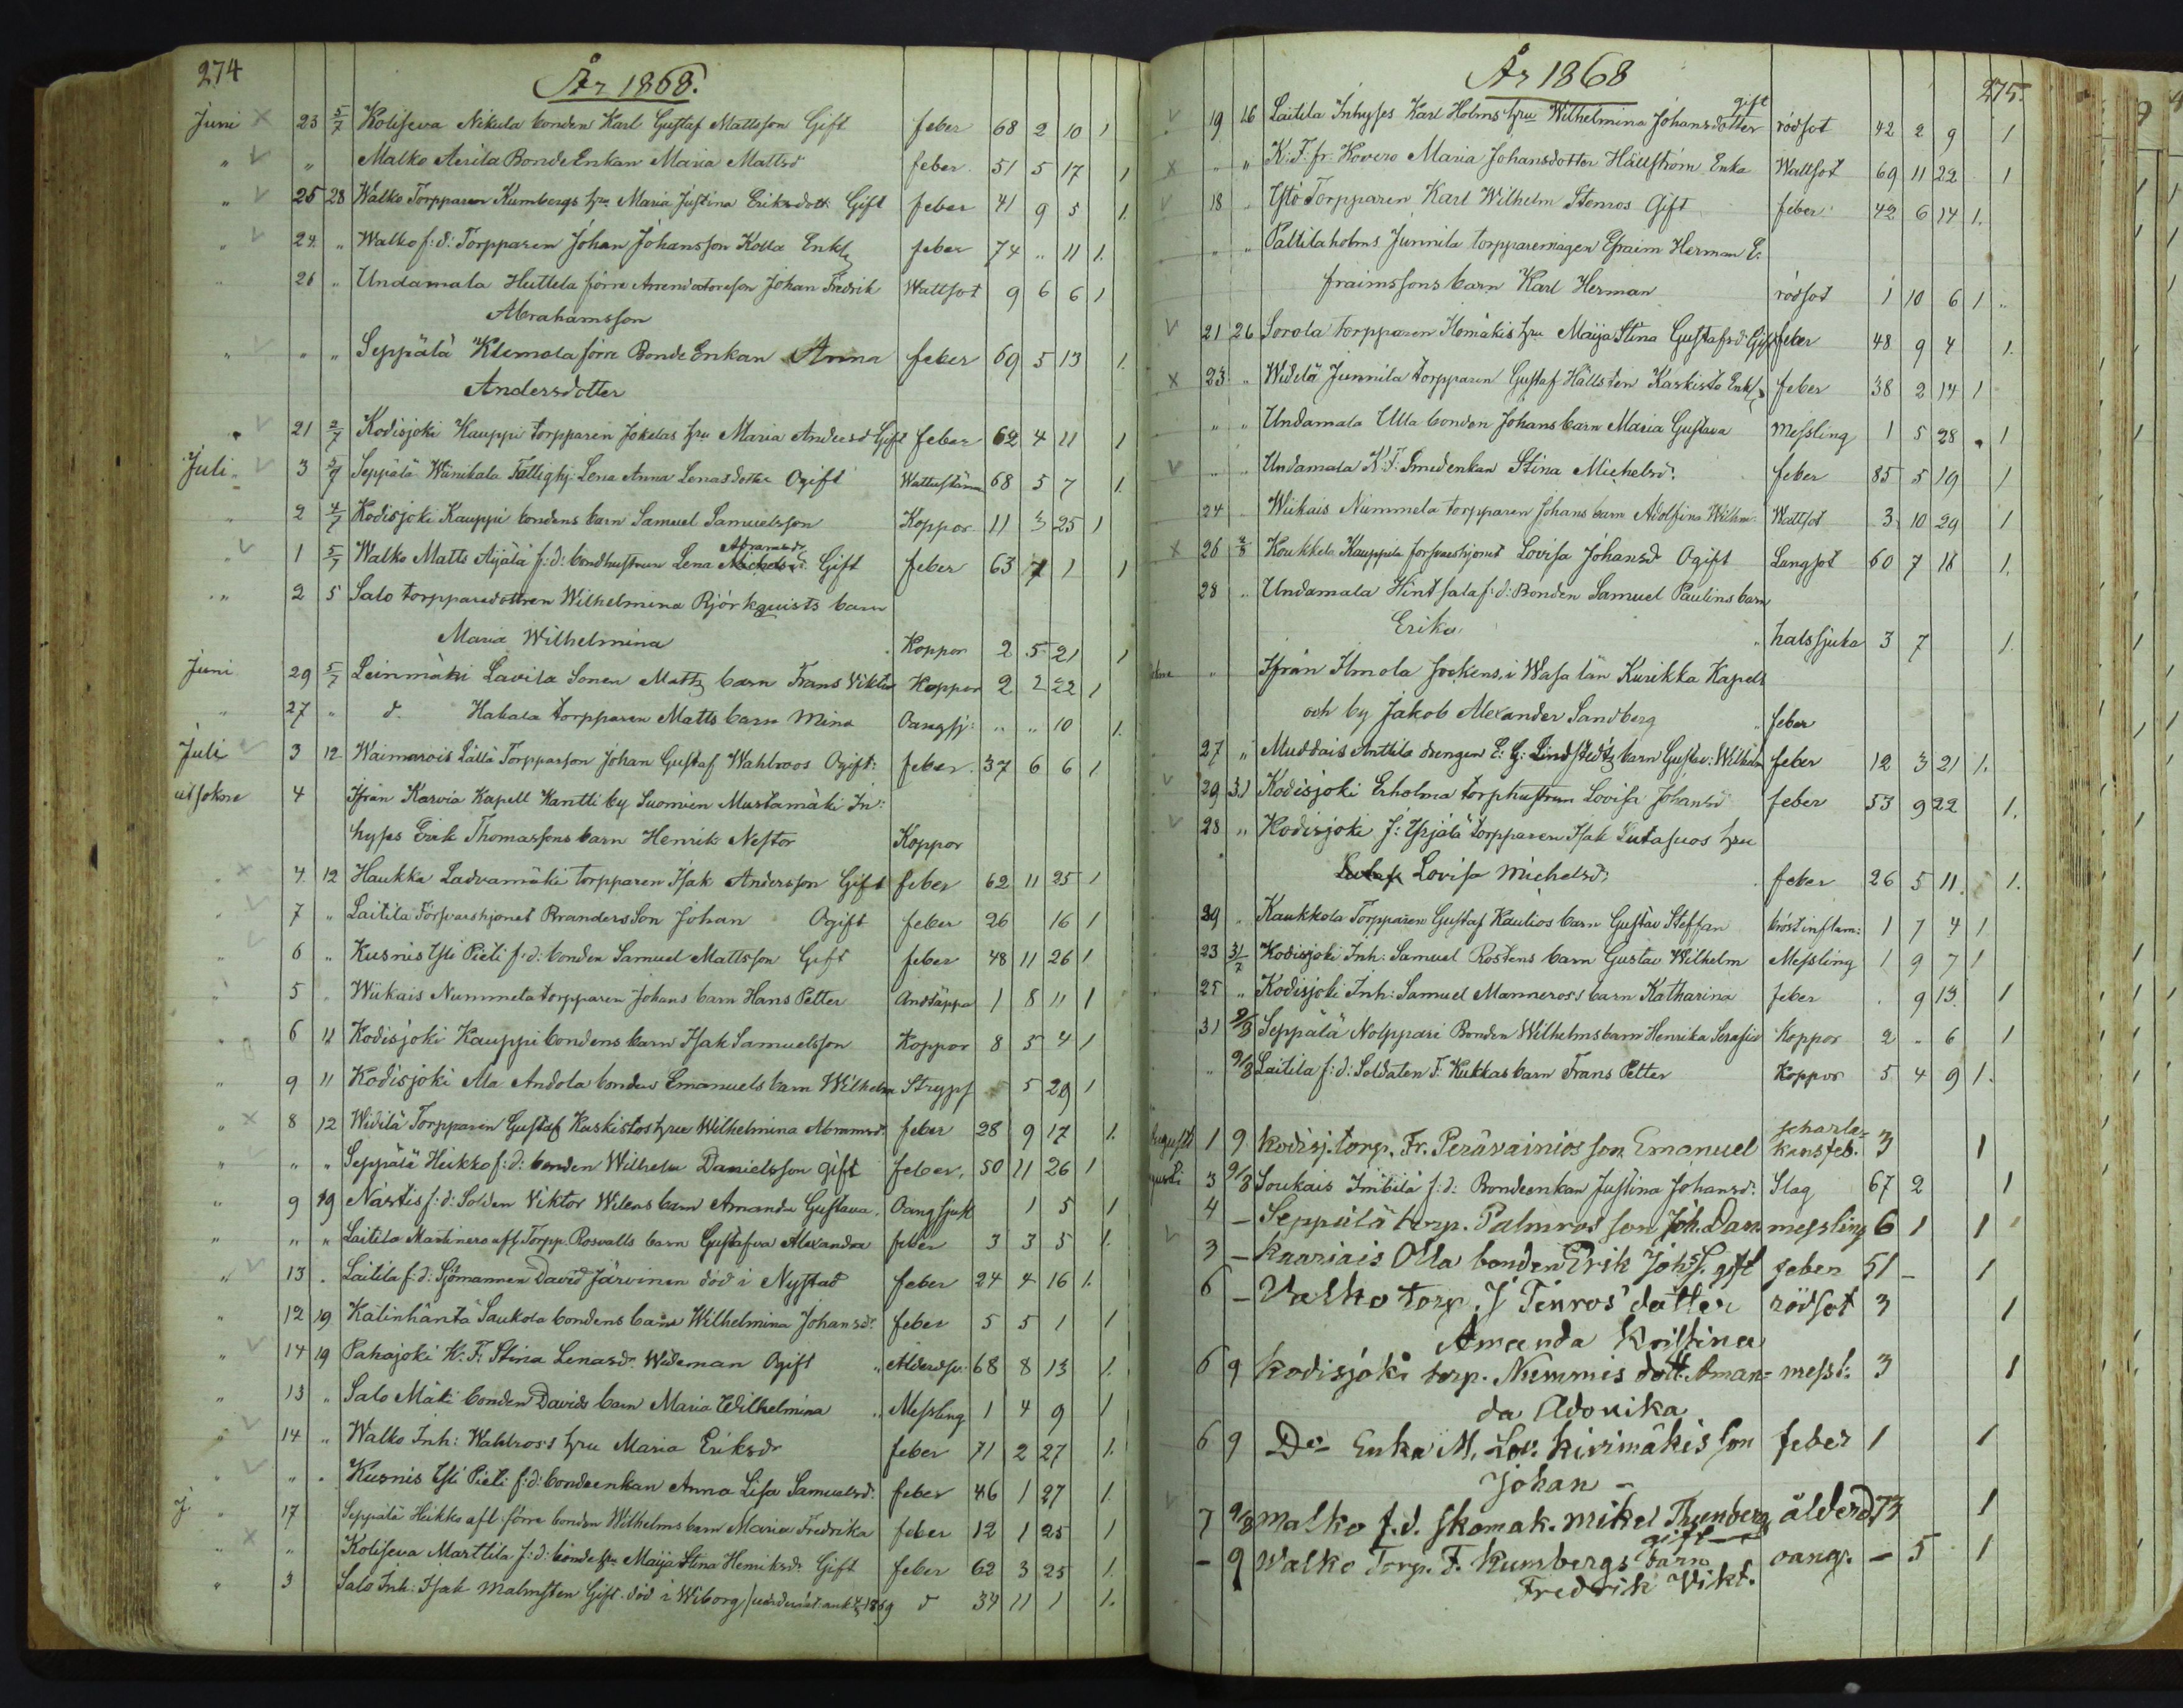 274
År 1868.
Juni 23 5/7 Koliseva Nikula bonden Karl Gustaf Mattsson Gift feber 68 2 10 1
" " Malko Anila Bonde Enkan Maria Mattsd feber 51 5 17 1
" 25 28 Walko Torpparen Kumbergs hru Maria Justina Eriksdott Gift feber 41 9 5 1.
" 24. " Walko f:d: Torpparen Johan Johansson Kolla Enkl feber 74 " 11 1.
" 26 " Undamala Huttela förre Arrendatorsson Johan Fredrik Wattsot 9 6 6 1
Abrahamsson
" " " Seppälä Klemola förre Bonde Enkan Anna feber 69 5 13 1.
Andersdotter
" 21 2/7 Kodisjoki Kauppi torpparen Jokelas hru Maria Andersd Gift feber 62 4 11 1
Juli 3 5/7 Seppälä Wänikala Fattighj. Lena Anna Lenasdotter Ogift 68 5 7 1.
" 2 4/7 Kodisjoki Kauppi bondens barn Samuel Samuelsson Koppor 11 3 25 1
" 1 5/7 Walko Matts Äijälä f:d: bondhustrun Lena Abramsdr Gift feber 63 7 1 1
" 2 5 Salo torpparedottren Wilhelmina Björkquists barn
Maria Wilhelmina Koppor 2 5 21 1
Juni 29 5/7 Leinmäki Lavila Sonen Matts barn Frans Viktor Koppor 2 2 22 1
" 27 " d. Hakala torpparen Matts barn Mina Oangsj: " " 10 1.
Juli 3 12 Waimarois Lällä Torpparson Johan Gustaf Wahlroos Ogift: feber 37 6 6 1
utsokne 4 Ifrån Karvia Kapell Kantti by Suomien Mustamäki In:
hyses Erik Thomassons barn Henrik Nestor Koppor
4. 12 Haukka Ladvamäki torpparen Isak Andersson Gift feber 62 11 25 1
7 " Laitila Försvarshjonet Branders Son Johan Ogift feber 26 16 1
6 " Kusnis Isti Pieti f:d: bonden Samuel Mattsson Gift feber 48 11 26 1
5 Wiikais Nummela torpparen Johans barn Hans Petter Andtäppa 1 8 11 1
6 11 Kodisjoki Kauppi bondens barn Isak Samuelsson Koppor 8 5 4 1
" 9 11 Kodisjoki Ala Andola bondens Emanuels barn Wilhelm Stryps 5 29 1
" 8 12 Widilä Torpparen Gustaf Kaskistos hru Wilhelmina Abramsd. feber 28 9 17 1.
" " " Seppälä Heikko f:d: bonden Wilhelm Danielsson gift feber. 50 11 26 1
" 9 19 Nästis f:d: Solden Viktor Wilens barn Amanda Gustava. Oangsjuk 1 5 1
" " " Laitila Martinero aft Torpp. Rosvalls barn Gustafva Alexandra feber 3 3 5 1.
" 13 . Laitila f:d: Sjömannen David Järvinen död i Nystad feber 24 4 16 1.
" 12 19 Katinhäntä Saukola bondens barn Wilhelmina Johansdr. feber 5 5 1 1
" 14 19 Pahojoki K. F: Stina Lenasdr. Wideman Ogift Alderdsv. 68 8 13 1.
" 13 " Salo Mäki bonden Davids barn Maria Wilhelmina Messling 1 4 9 1
" 14 " Walko Inh: Wahlross hru Maria Eriksdr feber 71 2 27 1.
" . Kusnis Isti Pieti f:d: bondeenkan Anna Lisa Samuelsd. feber 46 1 27 1.
17 Seppälä Heikko aft förre bonden Wilhelms barn Maria Fredrika feber 12 1 25 1
" " Koliseva Marttila f:d: bonde hru Maija Stina Henriksdr. Gift feber 62 3 25 1.
" 3 Salo Inh: Isak Malmsten Gift. död i Wiborg 1869 d 34 11 1 1.
År 1868
275.
19 26 Laitila Inhyses Karl Holms hru Wilhelmina Johansdotter gift rödsot 42 2 9 1
" " K. F. fr. Kovero Maria Johansdotter Hällström Enka Wattsot 69 11 22 1
18 Ystö Torpparen Karl Wilhelm Stenros Gift feber 42 6 14 1.
" " Paltila holms Junnila torpparemågen Efraim Herman E:
fraimssons barn Karl Herman rödsot 1 10 6 1
21 26 Sorola torpparen Homäkis hru Maija Stina Gustafsd: Gift feber 48 9 4 1.
23 " Widilä Junnila torpparen Gustaf Hällsten Kaskisto Enkl feber 38 2 14 1
" " Undamala Ulla bonden Johans barn Maria Gustava Messling 1 5 28 1
" " Undamala K. F: Smedenkan Stina Michelsd. feber 85 5 19 1
24 Wiikais Nummela torpparen Johans barn Adolfina Wilhm. Wattsot 3 10 29 1
26 2/8 Koukkela Kauppila forsvarshjonet Lovisa Johansd Ogift Lungsot 60 7 18 1.
28 " Undamala Hintsala f:d: Bonden Samuel Paulins barn
Erika halssjuka 3 7 1.
" Ifrån Ilmola sockens, i Wasa län Kurikka Kapell
och by Jakob Alexander Sandberg feber
27 " Muddais Anttila drengen E: G: Lindstedts barn Gustav: Wilhelm feber 12 3 21 1.
29 31 Kodisjoki Erholma torphustrun Lovisa Johansd feber 53 9 22 1.
28 " Kodisjoki f: Yrjälä torpparen Isak Tutasuos hru
Lovisa Michelsd: feber 26 5 11. 1.
29 " Kaukkola Torpparen Gustaf Kaulios barn Gustav Steffan bröstinflam: 1 7 4 1
23 31/7 Kodisjoki Inh: Samuel Rostens barn Gustav Wilhelm Messling 1 9 7 1
25 " Kodisjoki Inh: Samuel Manneross barn Katharina feber 9 13. 1
31 9/8 Seppälä Nolppari Bonden Wilhelms barn Henrika Serafia Koppor 2 " 6 1
" 9/8 Laitila f:d: Soldaten F. Kukkas barn Frans Petter Koppor 5 4 9 1.
August 1 9 Kodisj. torp. Fr. Perävainios son Emanuel scharla= kansfeb. 3 1
3 9/8 Soukais Imbilä f:d: Bondeenkan Justina Johansd. Slag 67 2 1
4 - Seppälä torp. Palmros son Joh. Dan. messling 6 1 1
3 - Kaariais Olla bonden Erik Johss. gift feber 51 - 1
6 - Valko torp. J Tenros' dotter rödsot 3 1
Amanda Kristina
6 9 Kodisjoki torp. Nummis dott. Aman= messl. 3 1
da Adonika
6 9 Do- Enka M. Lov. Kivimäkis son feber 1 1
Johan -
7 9/8 Malko f.d. skomak. Mikel Thunberg ålderd 73 1
gift -
- 9 Walko Torp. F. Kumbergs barn oang. - 5 1
Fredrik Vikt.